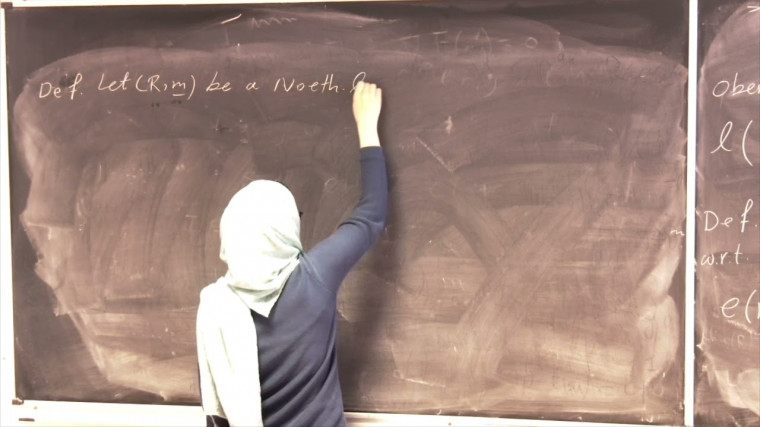 Def. Let (R, m) be a Noeth. l
Ober
l(
Def.
w.r.t
e(